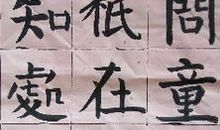 問童
祇在
知處